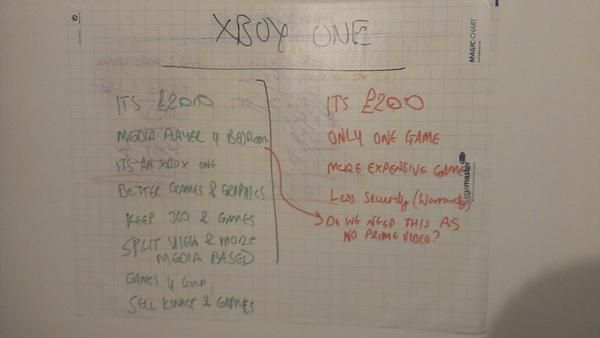 XBOX ONE
ITS £200
MEDIA PLAYER 4 BEDROOM
ITS AN XBOX ONE
BETTER GAMES & GRAPHICS
KEEP 360 & GAMES
SPLIT VIEW & MORE
MEDIA BASED
GAMES 4 GOLD
SELL KINECT & GAMES
ITS £200
ONLY ONE GAME
MORE EXPENSIVE GAMES
Less Security (Warranty)
DO WE NEED THIS AS
NO PRIME VIDEO?
MAGIC-CHART
legamaster